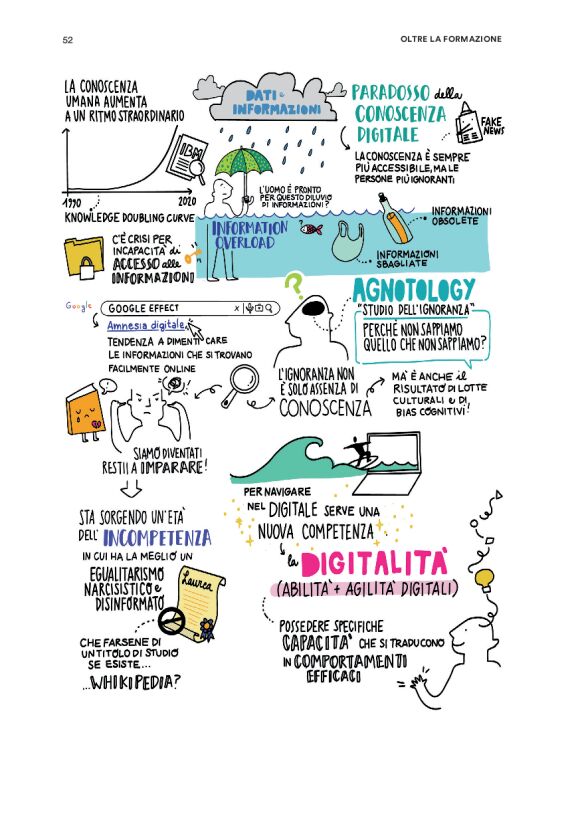 52
OLTRE LA FORMAZIONE
LA CONOSCENZA
UMANA AUMENTA
A UN RITMO STRAORDINARIO
IBM
1990
2020
KNOWLEDGE DOUBLING CURVE
DATI e
INFORMAZIONI
L'UOMO È PRONTO
PER QUESTO DILUVIO
DI INFORMAZIONI?
PARADOSSO della
CONOSCENZA
DIGITALE
FAKE
NEWS
LA CONOSCENZA È SEMPRE
PIÙ ACCESSIBILE, MA LE
PERSONE PIÙ IGNORANTI
INFORMATION
OVERLOAD
INFORMAZIONI
OBSOLETE
INFORMAZIONI
SBAGLIATE
C'È CRISI PER
INCAPACITÀ di
ACCESSO alle
INFORMAZIONI
Google
GOOGLE EFFECT
X
Amnesia digitale
TENDENZA A DIMENTICARE
LE INFORMAZIONI CHE SI TROVANO
FACILMENTE ONLINE
?
AGNOTOLOGY
"STUDIO DELL'IGNORANZA"
PERCHÈ NON SAPPIAMO
QUELLO CHE NON SAPPIAMO?
L'IGNORANZA NON
È SOLO ASSENZA DI
CONOSCENZA
MA È ANCHE il
RISULTATO DI LOTTE
CULTURALI e DI
BIAS COGNITIVI!
SIAMO DIVENTATI
RESTII A IMPARARE!
STA SORGENDO UN'ETÀ
DELL'INCOMPETENZA
IN CUI HA LA MEGLIO UN
EGUALITARISMO
NARCISISTICO e
DISINFORMATO
Laurea
CHE FARSENE DI
UN TITOLO DI STUDIO
SE ESISTE...
...WHIKIPEDIA?
PER NAVIGARE
NEL DIGITALE SERVE UNA
NUOVA COMPETENZA
la DIGITALITÀ
(ABILITÀ + AGILITÀ DIGITALI)
POSSEDERE SPECIFICHE
CAPACITÀ CHE SI TRADUCONO
IN COMPORTAMENTI
EFFICACI